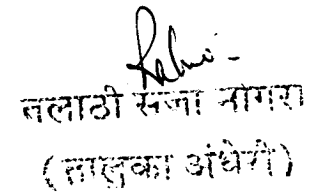 तलाठी सजा मोगरा
(तालुका अंधेरी)